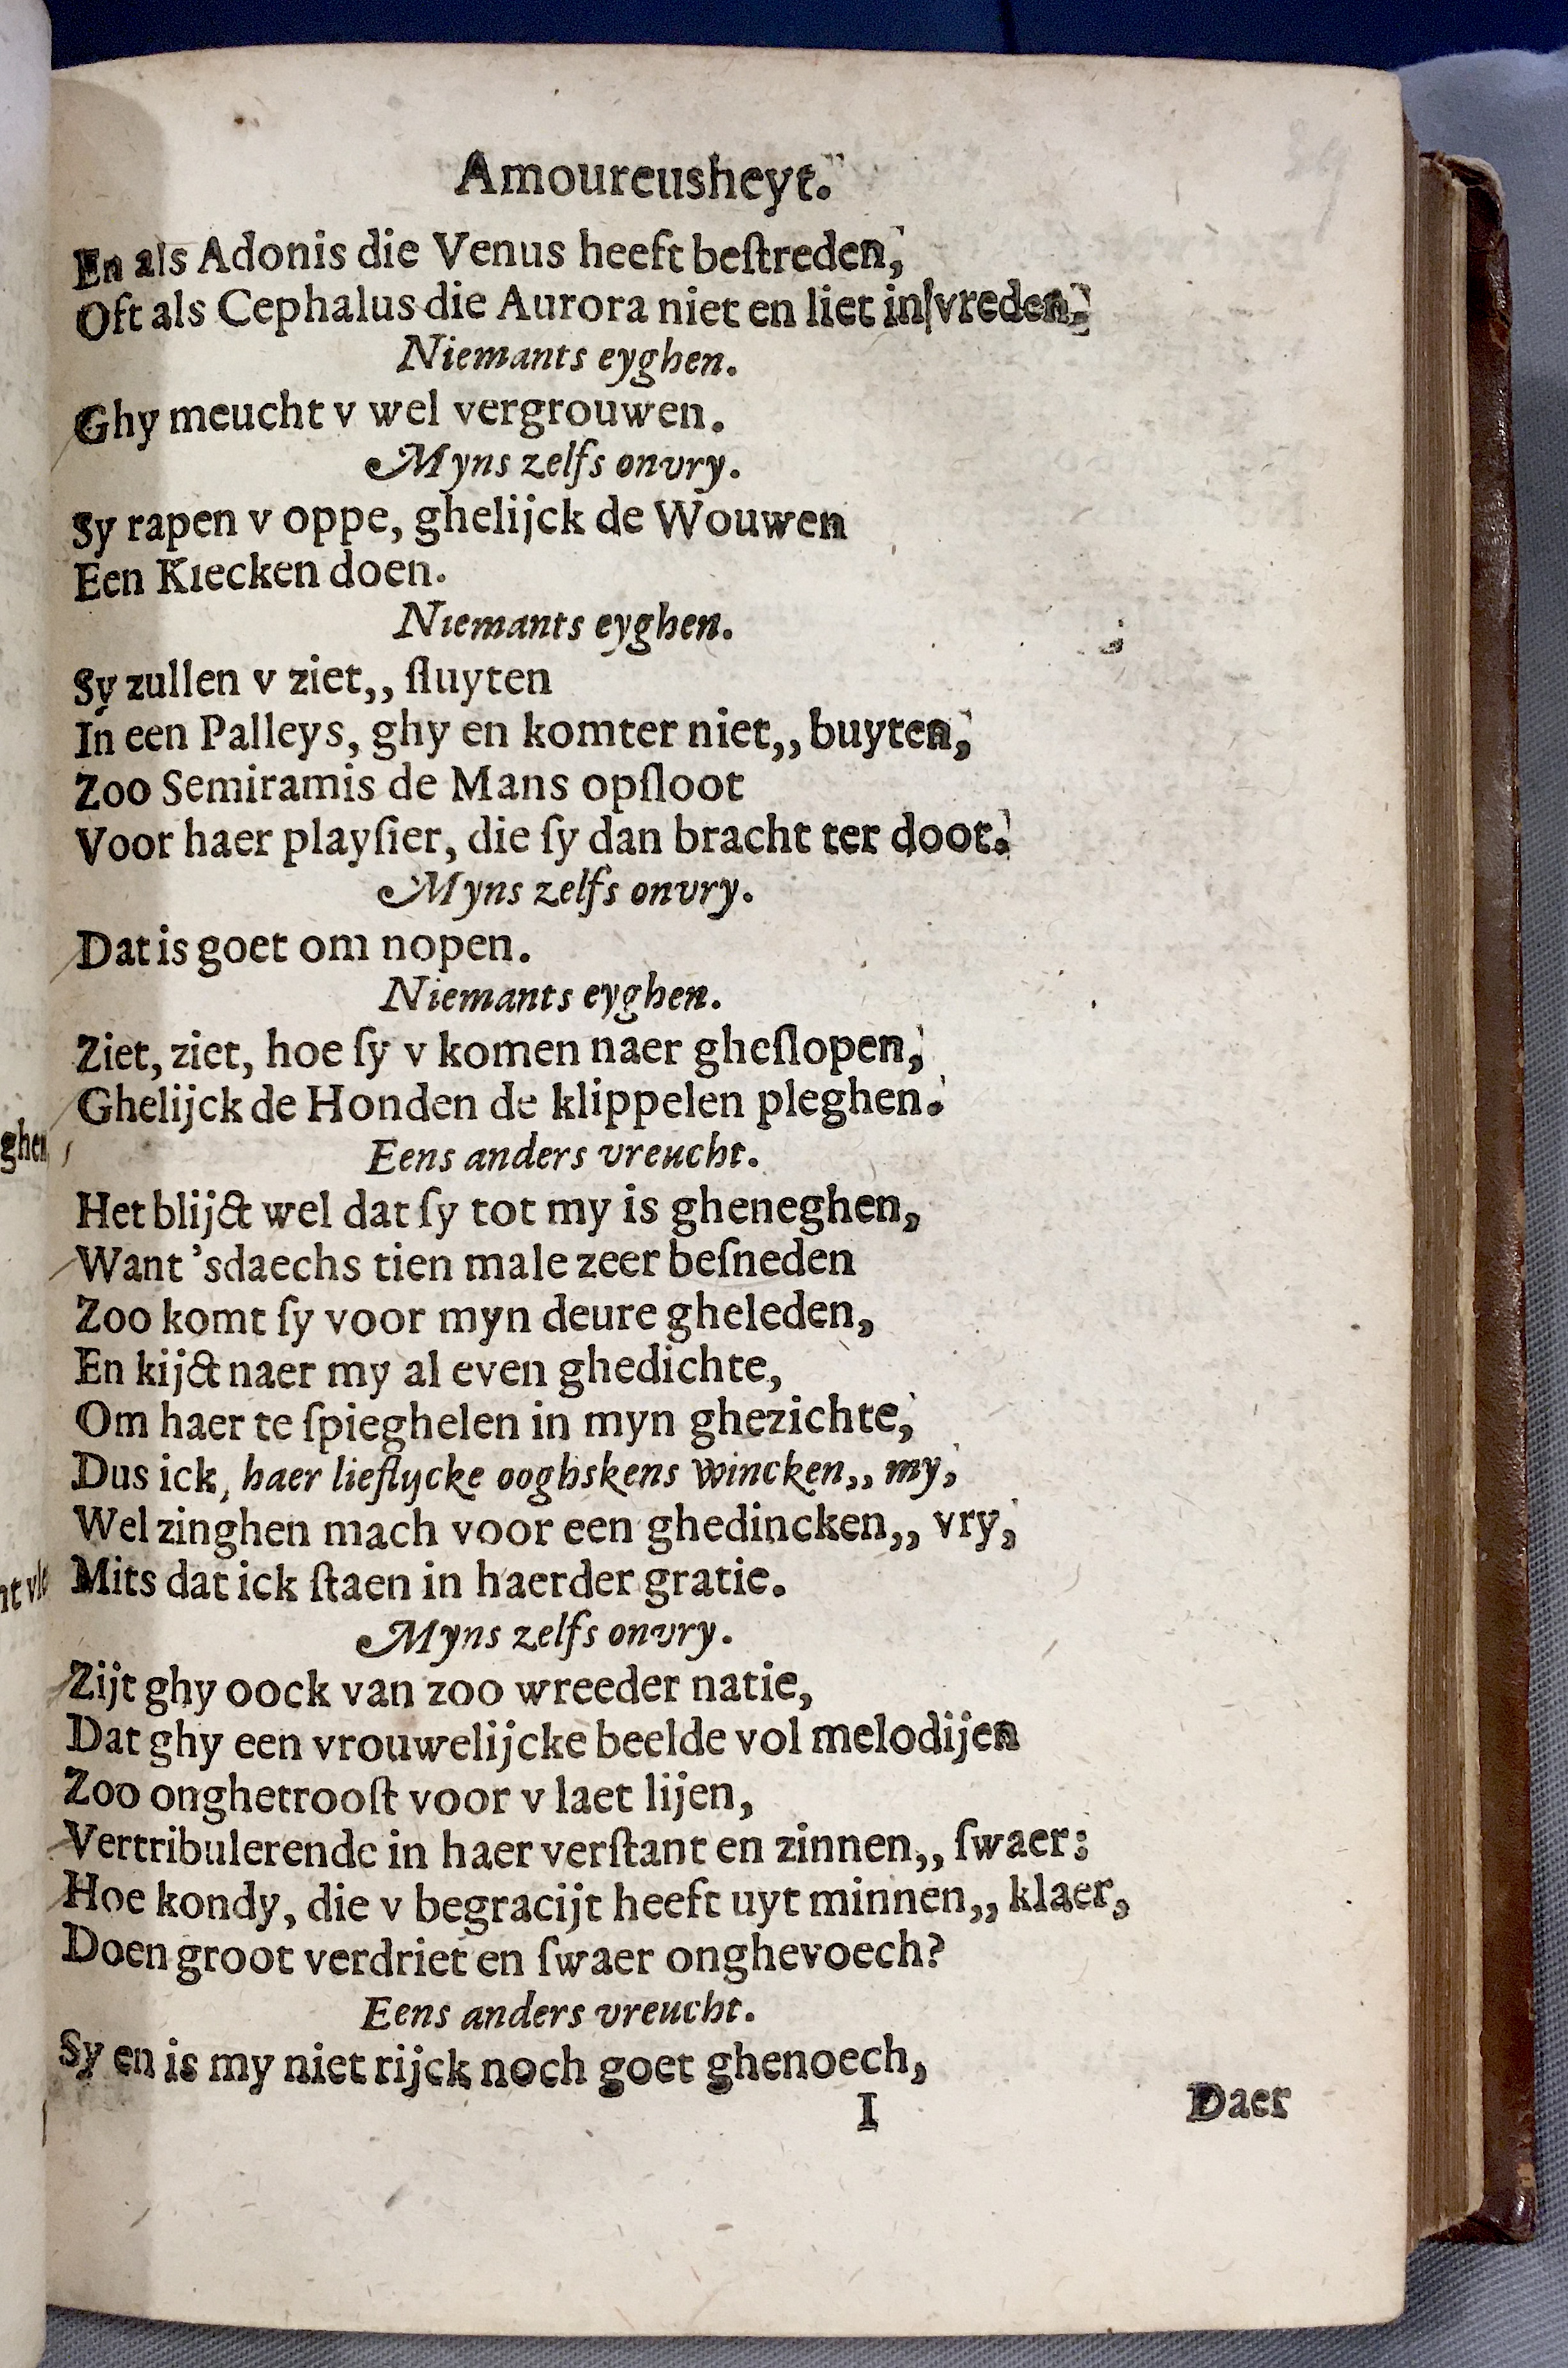 Amoureusheyt.
En als Adonis die Venus heeft beſtreden,
Oft als Cephalus die Aurora niet en liet in vreden.
Niemants eyghen.
Ghy meucht v wel vergrouwen.
Myns zelfs onvry.
Sy rapen v oppe, ghelijck de Wouwen
Een Kiecken doen.
Niemants eyghen.
Sy zullen v ziet,, ſluyten
In een Palleys, ghy en komter niet,, buyten,
Zoo Semiramis de Mans opſloot
Voor haer playſier, die ſy dan bracht ter doot.
Myns zelfs onvry.
Dat is goet om nopen.
Niemants eyghen.
Ziet, ziet, hoe ſy v komen naer gheſlopen,
Ghelijck de Honden de klippelen pleghen.
Eens anders vreucht.
Het blijct wel dat ſy tot my is gheneghen,
Want 'sdaechs tien male zeer beſneden
Zoo komt ſy voor myn deure gheleden,
En kijct naer my al even ghedichte,
Om haer te ſpieghelen in myn ghezichte,
Dus ick, haer lieflycke ooghskens wincken,, my,
Wel zinghen mach voor een ghedincken,, vry,
Mits dat ick ſtaen in haerder gratie.
Myns zelfs onvry.
Zijt ghy oock van zoo wreeder natie,
Dat ghy een vrouwelijcke beelde vol melodijen
Zoo onghetrooſt voor v laet lijen,
Vertribulerende in haer verſtant en zinnen,, ſwaer:
Hoe kondy, die v begracijt heeft uyt minnen,, klaer,
Doen groot verdriet en ſwaer onghevoech?
Eens anders vreucht.
Sy en is my niet rijck noch goet ghenoech,
I
Daer